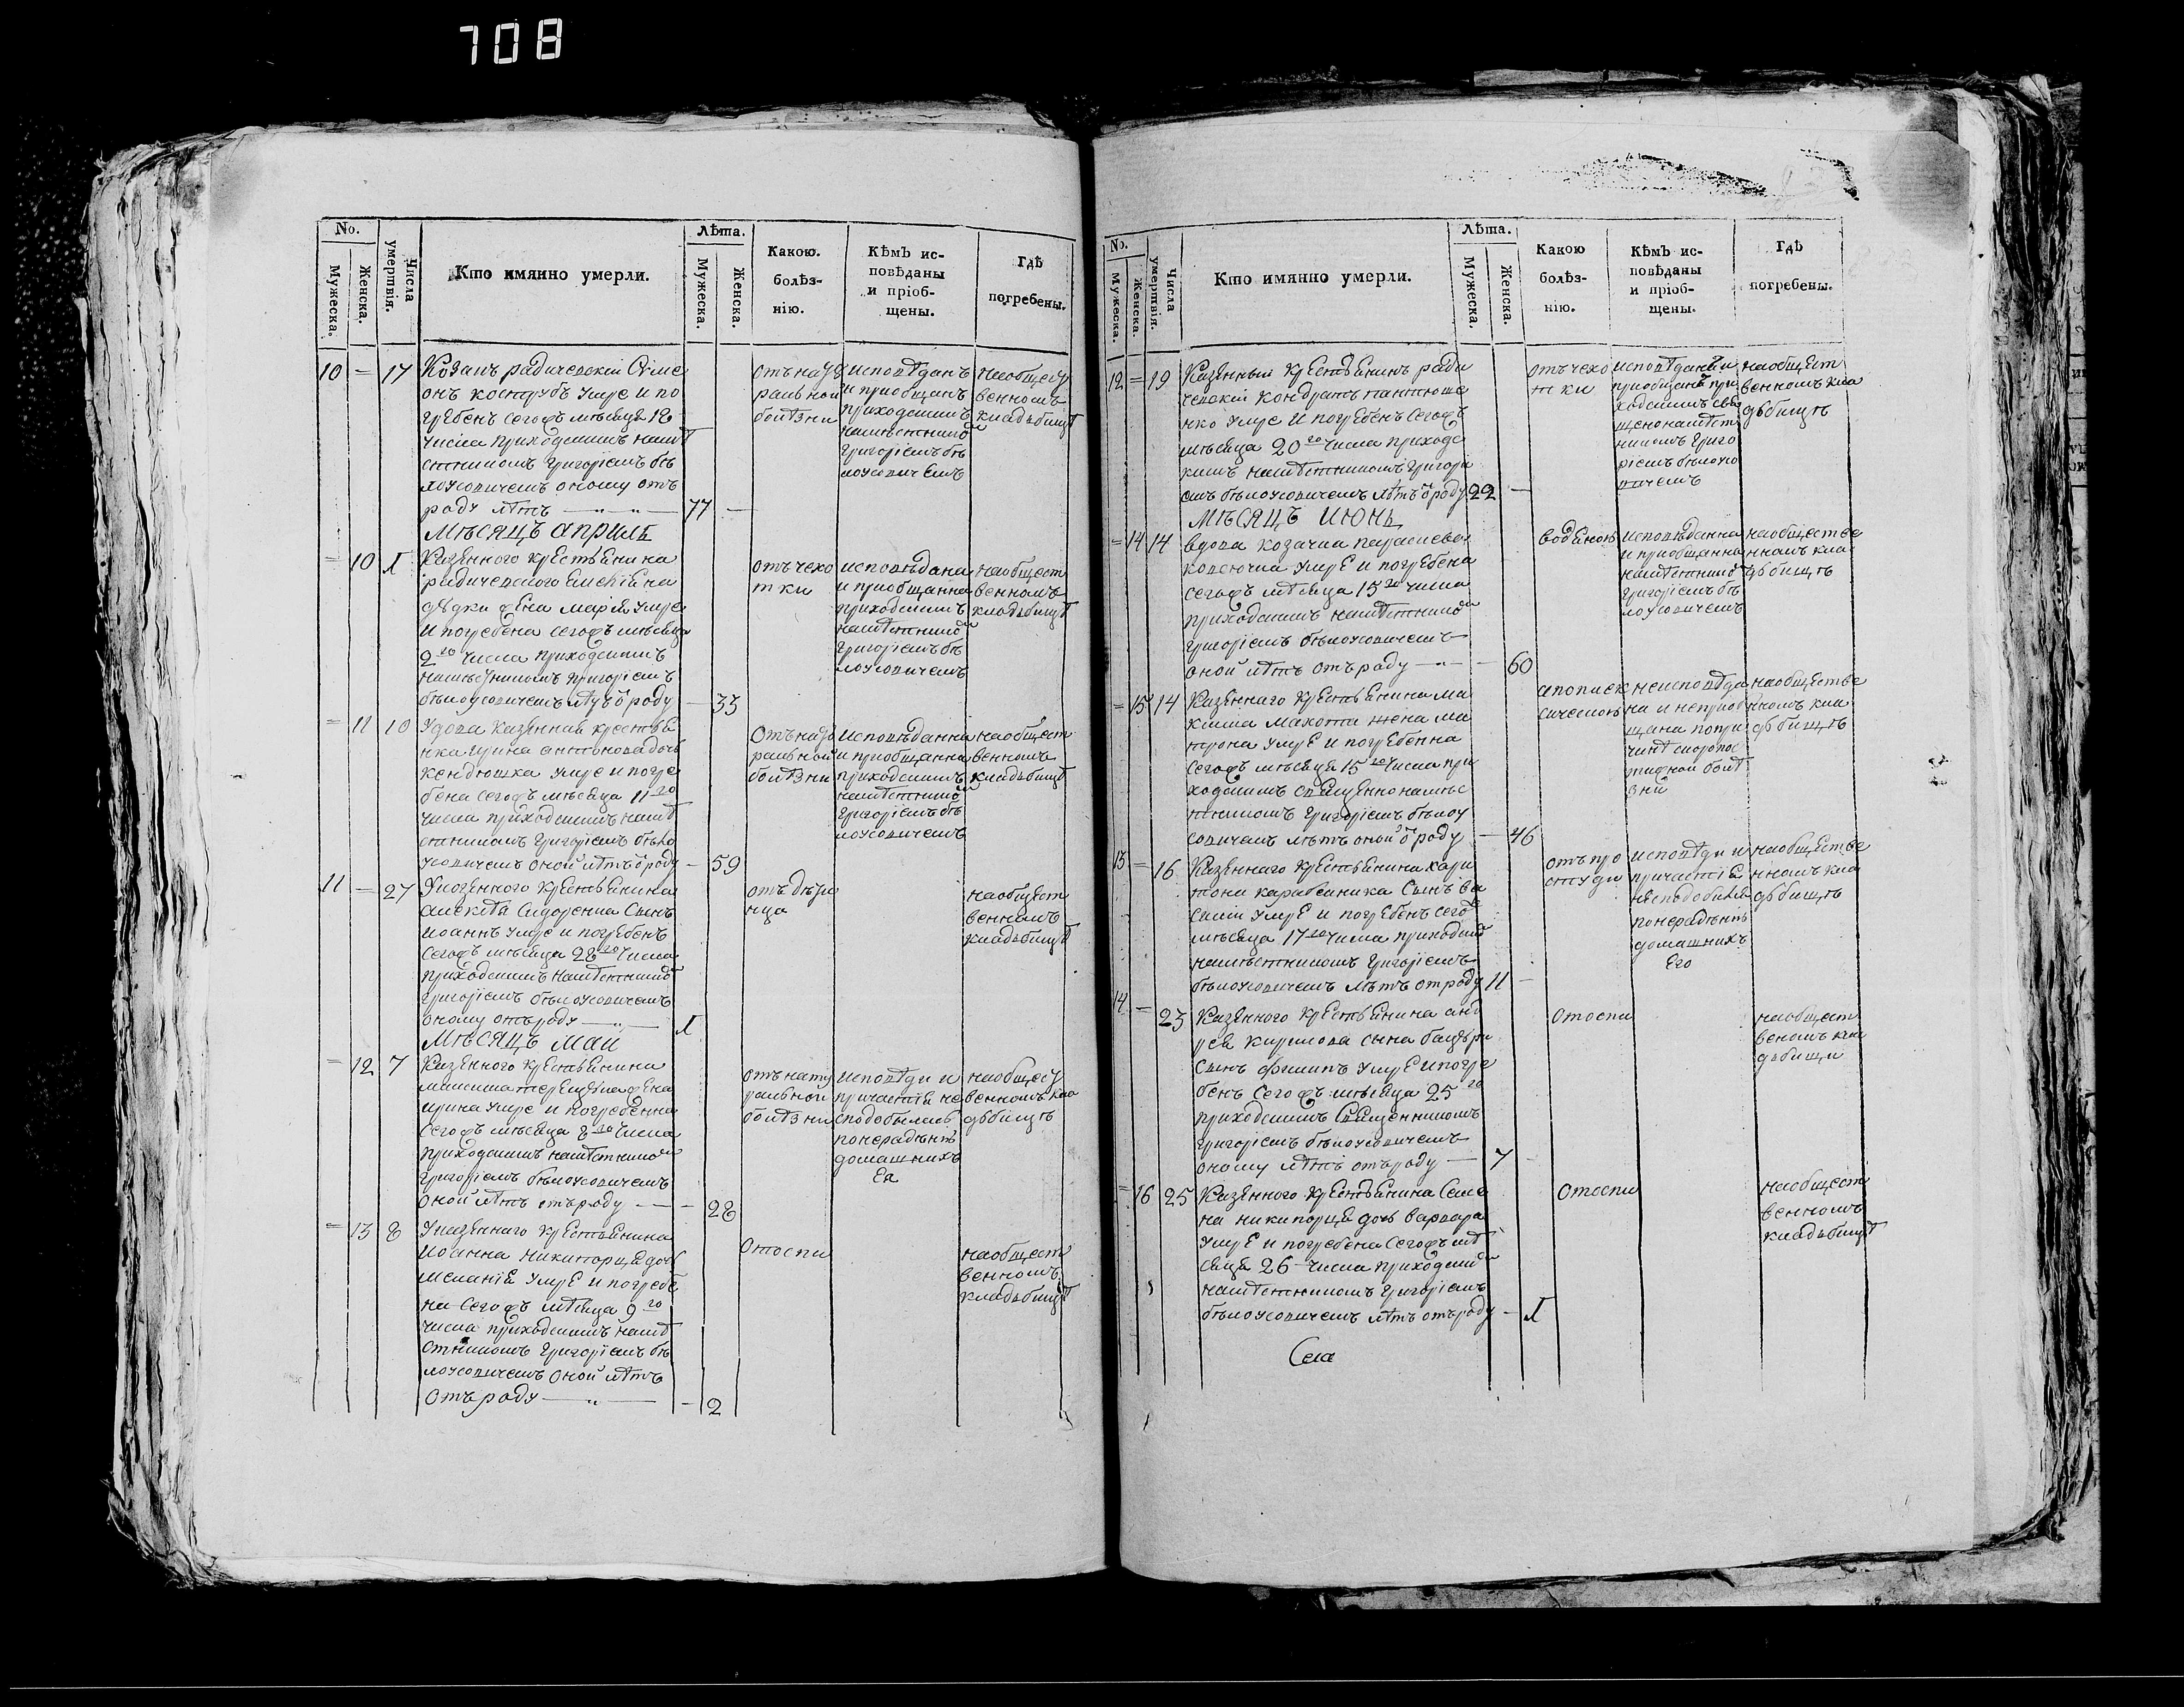 708
No.
Мужеска.
Женска.
Числа умертвія.
Кто имянно умерли.
Лѣта.
Мужеска.
Женска.
Какою. болѣз- нію.
Кѣмъ ис- повѣданы и пріоб- щены.
Гдѣ погребены.
10 — 17 Козакъ радичевскій Симе
онъ кострубъ умре и по
гребенъ сегожъ мѣсяца 18
числа приходскимъ намѣ
стникомъ Григоріемъ бѣ
лоусовичемъ оному отъ
роду лѣтъ — 77 —
отъ нату
ральной
болѣзни
исповѣданъ
и приобщанъ
приходскимъ
намѣстникомъ
Григоріемъ бѣ
лоусовичемъ
на общест
венномъ
кладьбищѣ
мѣсяцъ априль
= 10 1 Казенного крестьянина
радичевского
жена Марія умре
и погребена сегожъ мѣсяца
2го числа приходскимъ
намѣстникомъ Григоріемъ
бѣлоусовичемъ роду — 33
отъ чехо
тки
исповѣдана
и приобщанна
приходскимъ
намѣстникомъ
Григоріемъ бѣ
лоусовичемъ
на общест
венномъ
кладьбищѣ
= 11 10 Удова казенная крестья
нка Ирина антонова дочь
кендюшка умре и погре
бена сегожъ мѣсяца 11го
числа приходскимъ намѣ
стникомъ Григоріемъ бѣло
усовичемъ оной лѣтъ ѿ роду — 59
отъ нату
ральной
болѣзни
исповѣданна
и приобщанна
приходскимъ
намѣстникомъ
Григоріемъ бѣ
лоусовичемъ
на общест
венномъ
кладьбищѣ
11 — 27 Указенного крестьянина
алексѣя Сидоренка сынъ
Иоаннъ умре и погребенъ
сегожъ мѣсяца 28го числа
приходскимъ намѣстникомъ
Григоріемъ бѣлоусовичемъ
оному отъ роду — 1
отъ
на общест
венномъ
кладьбищѣ
мѣсяцъ маи
= 12 7 Казенного крестьянина
максима жена
ирина умре и погребенна
сегожъ мѣсяца 8го числа
приходскимъ намѣстникомъ
Григоріемъ бѣлоусовичемъ
оной лѣтъ отъ роду — 28
отъ нату
ральной
болѣзни
исповѣди и
причастія не
сподобилась
понерадѣнію
домашнихъ
Ея
на общест
венномъ кла
дьбищѣ
= 13 8 Указенного крестьянина
Иоанна никипорца дочь
меланія умре и погребе
на сегожъ мѣсяца 9го
числа приходскимъ намѣ
стникомъ Григоріемъ бѣ
лоусовичемъ оной лѣтъ
отъ роду — 2
отоспи
на общест
венномъ
кладьбищѣ
No.
Мужеска.
Женска.
Числа умертвія.
Кто имянно умерли.
Лѣта.
Мужеска.
Женска.
Какою болѣз- нію.
Кѣмъ ис- повѣданы и пріоб- щены.
Гдѣ погребены.
12 = 19 Казенный крестьянинъ ради
чевскій Кондратъ пантюше
нко умре и погребенъ сегожъ
мѣсяца 20го числа приходс
кимъ намѣстникомъ Григорі
емъ бѣлоусовичемъ лѣтъ ѿ роду 22 —
отъ чехо
тки
исповѣданъ и
приобщанъ при
ходскимъ свя
щенонамѣст
никомъ Григо
ріемъ бѣлоусо
вичемъ
на общест
венномъ кла
дьбищѣ
мѣсяцъ июнь
= 14 14 вдова козачка параскева
умре и погребена
сегожъ мѣсяца 15го числа
приходскимъ намѣстникомъ
Григоріемъ бѣлоусовичемъ
оной лѣтъ отъ роду — 60
водяною
исповѣданна
и приобщанна
намѣстникомъ
Григоріемъ бѣ
лоусовичемъ
на обществе
нномъ кла
дьбищѣ
= 15 14 Казеннаго крестьянина ма
ксима махоти жена ма
трона умре и погребенна
сегожъ мѣсяца 15го числа при
ходскимъ священнонамѣс
тникомъ Григоріемъ бѣлоу
совичемъ лѣтъ оной ѿ роду — 46
апоплек
сическою
неисповѣда
на и неприоб
щана попри
чинѣ скоропос
тижной болѣ
зни
на обществе
нномъ кла
дьбищѣ
13 — 16 Казеннаго крестьянина хари
тона карабаника сынъ ва
силій умре и погребенъ сегожъ
мѣсяца 17го числа приходским
намѣстникомъ Григоріемъ
бѣлоусовичемъ лѣтъ отроду 11 —
отъ про
студи
исповѣди и
причастія
неподобился
понерадѣнію
домашнихъ
Его
на обществе
нномъ кла
дьбищѣ
14 — 23 Казенного крестьянина анд
рея кирилова сына
сынъ филипъ умре и погре
бенъ сегожъ мѣсяца 25го
приходскимъ священникомъ
Григоріемъ бѣлоусовичемъ
оному лѣтъ отъ роду — 7 —
отоспи
на общест
веномъ кла
дьбищи
= 16 25 Казенного крестьянина Семе
на никипорца дочь варвара
умре и погребена сегожъ мѣ
сяца 26 числа приходским
намѣстникомъ Григоріемъ
бѣлоусовичемъ лѣтъ отъ роду — 1
отоспи
на общест
венномъ
кладьбищѣ
Села